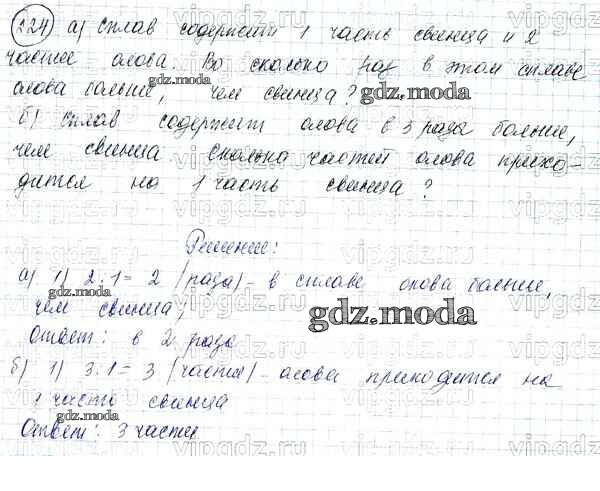 224 а) Сплав содержит 1 часть свинца и 2
части олова. Во сколько раз в этом сплаве
олова больше, чем свинца?
б) Сплав содержит олова в 3 раза больше,
чем свинца Сколько частей олова прихо-
дится на 1 часть свинца?
Решение:
а) 1) 2:1= 2 (раза) - в сплаве олова больше,
чем свинца
Ответ: в 2 раза
б) 1) 3:1= 3 (части) - олова приходится на
1 часть свинца
Ответ: 3 части
gdz.moda
gdz.moda
gdz.moda
gdz.moda
gdz.moda
vipgdz.ru